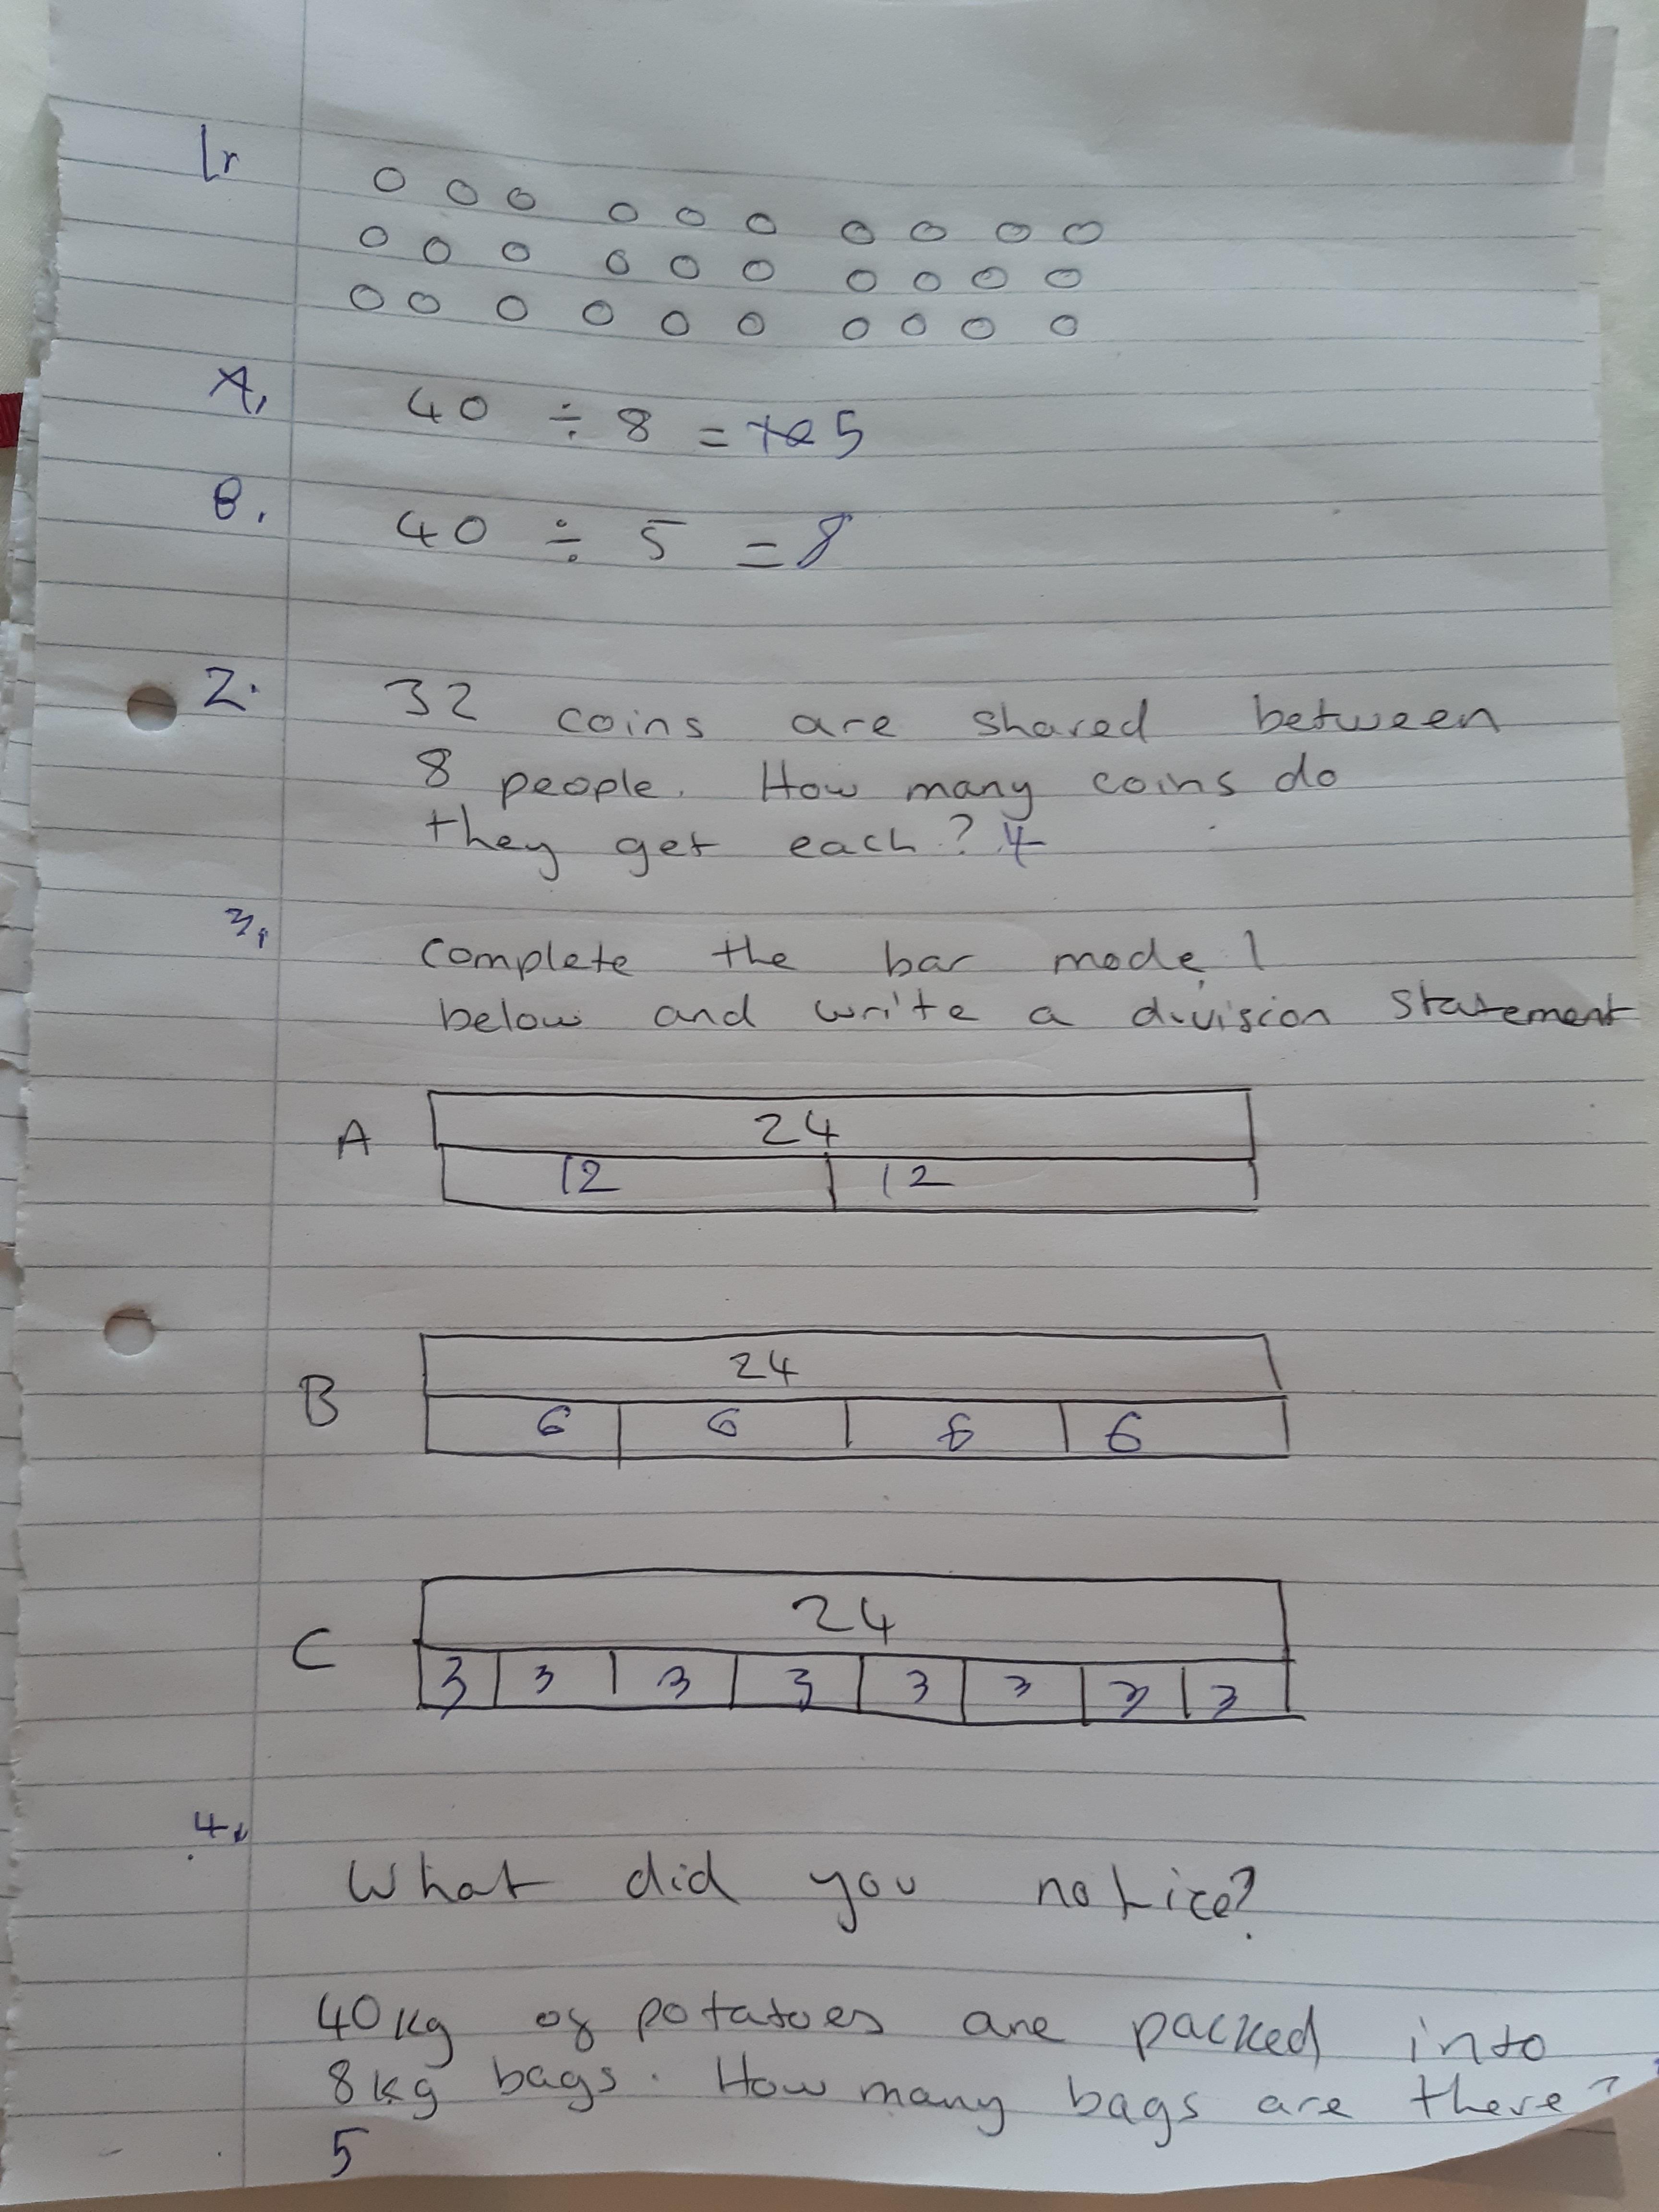 1,
A, 40 ÷ 8 = 5
B, 40 ÷ 5 = 8
2. 32 coins are shared between
8 people. How many coins do
they get each? 4
3,
complete the bar model
below and write a division statement
24
A
12 12
24
B
6 6 6 6
24
C
3 3 3 3 3 3 3 3
4.
What did you notice?
40kg of potatoes are packed into
8kg bags. How many bags are there?
5